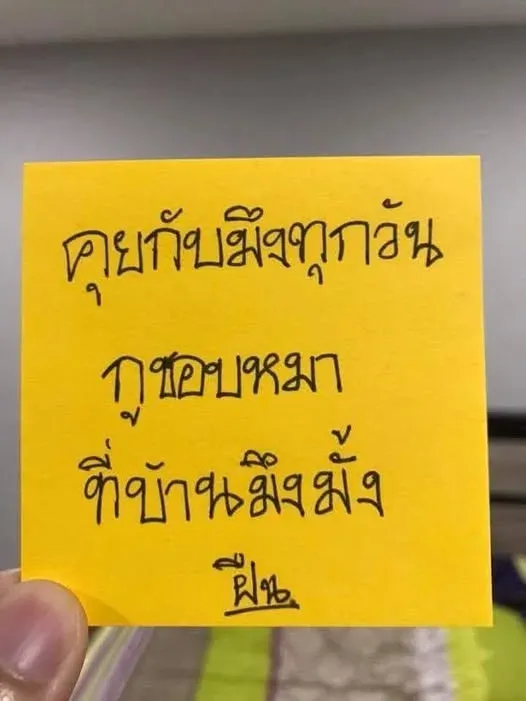 คุยกับมึงทุกวัน
กูชอบหมา
ที่บ้านมึงมั้ง
ฝืน